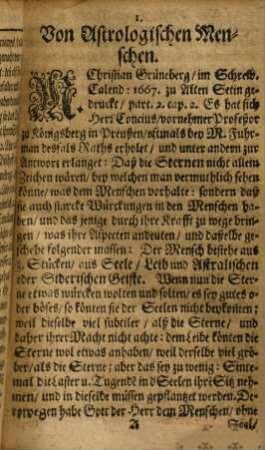 1.
Von Astrologischen Men-
schen.
M. Christian Grüneberg/ im Schreib-
Calend: 1667. zu Alten Setin ge-
druckt/ part. 2. cap. 2. Es hat sich
Herr Concius/ vornehmer Professor
zu Königsberg in Preussen/ esmals bey M. Fuhr-
man desfals Raths erholet/ und unter andern zur
Antwort erlanget: Daß die Sternen nicht allein
Zeichen wären/ bey welchen man vermuthlich sehen
könne/ was dem Menschen vorhalte: sondern daß
sie auch starcke Würckungen in den Menschen ha-
ben/ und das jenige durch ihre Krafft zu wege brin-
gen/ was ihre Aspecten andeuten/ und dasselbe ge-
schehe folgender massen: Der Mensch bestehe aus
3. Stücken/ aus Seele/ Leib und Astralischen
oder Siderischen Geiste. Wenn nun die Ster-
ne etwas würcken wolten und solten/ es sey gutes o-
der böses/ so könten sie der Seelen nicht beykom̃en;
weil dieselbe viel subtiler/ als die Sterne/ und
daher ihrer Macht nicht achte: dem Leibe könten die
Sterne wol etwas anhaben/ weil derselbe viel grö-
ber/ als die Sterne; aber das sey zu wenig: Sinte-
mal die Laster u. Tugende in Seelen ihrē Sitz neh-
men/ und in dieselbe müssen gepflantzet werden. De-
rowegen habe Gott der Herr dem Menschen/ ohne
A Seel/